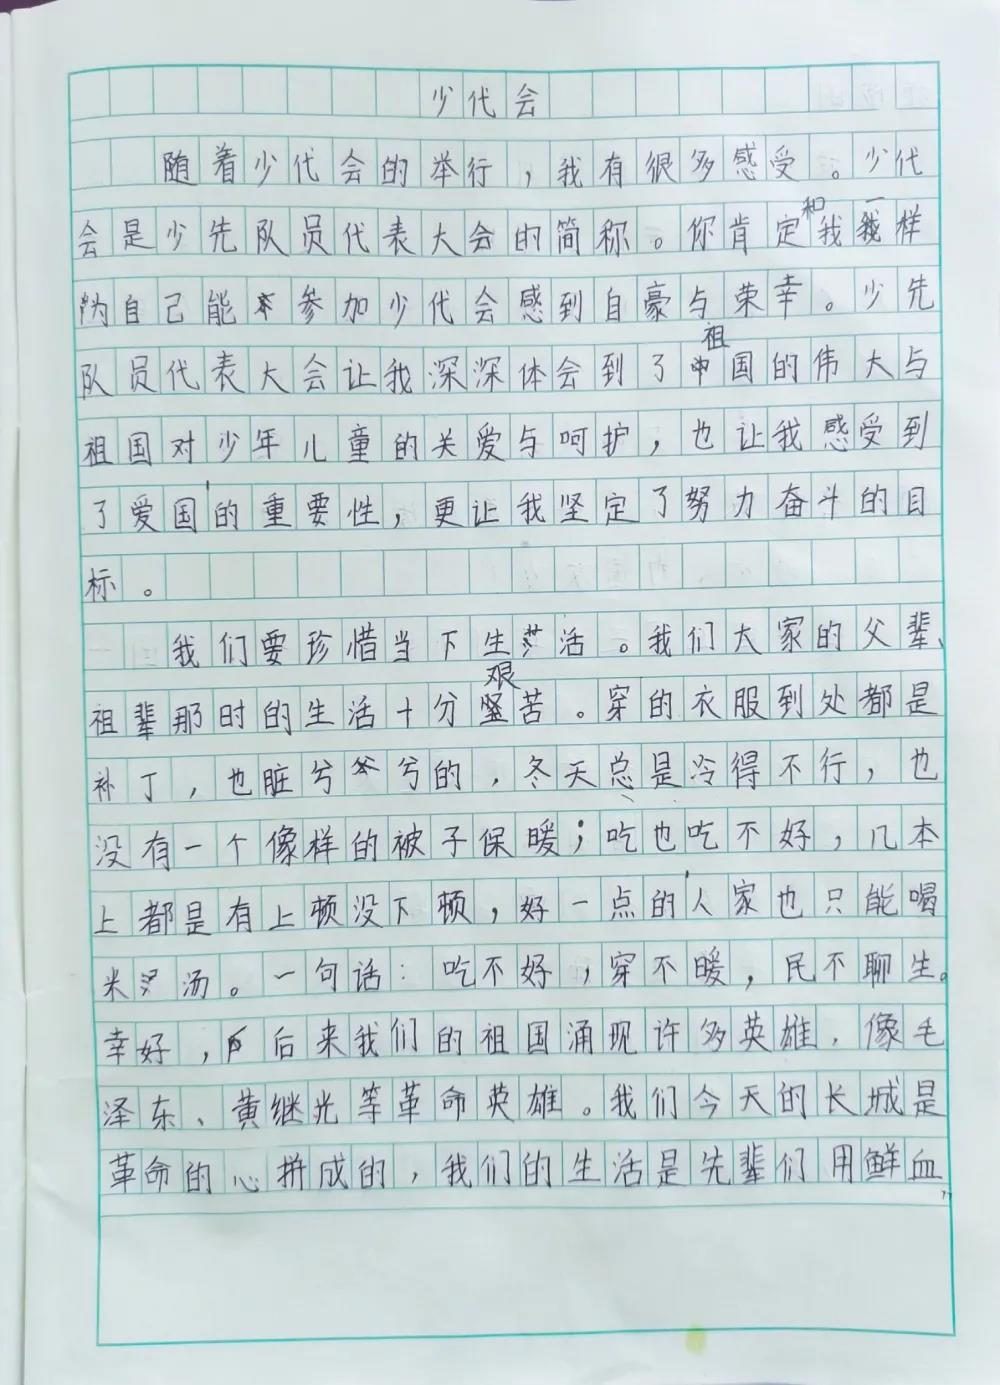 少代会
随着少代会的举行，我有很多感受。少代
会是少先队员代表大会的简称。你肯定和我一样
为自己能参加少代会感到自豪与荣幸。少先
队员代表大会让我深深体会到了祖国的伟大与
祖国对少年儿童的关爱与呵护，也让我感受到
了爱国的重要性，更让我坚定了努力奋斗的目
标。
我们要珍惜当下生活。我们大家的父辈、
祖辈那时的生活十分艰苦。穿的衣服到处都是
补丁，也脏兮兮的，冬天总是冷得不行，也
没有一个像样的被子保暖；吃也吃不好，几本
上都是有上顿没下顿，好一点的人家也只能喝
米汤。一句话：吃不好，穿不暖，民不聊生。
幸好，后来我们的祖国涌现许多英雄，像毛
泽东、黄继光等革命英雄。我们今天的长城是
革命的心拼成的，我们的生活是先辈们用鲜血